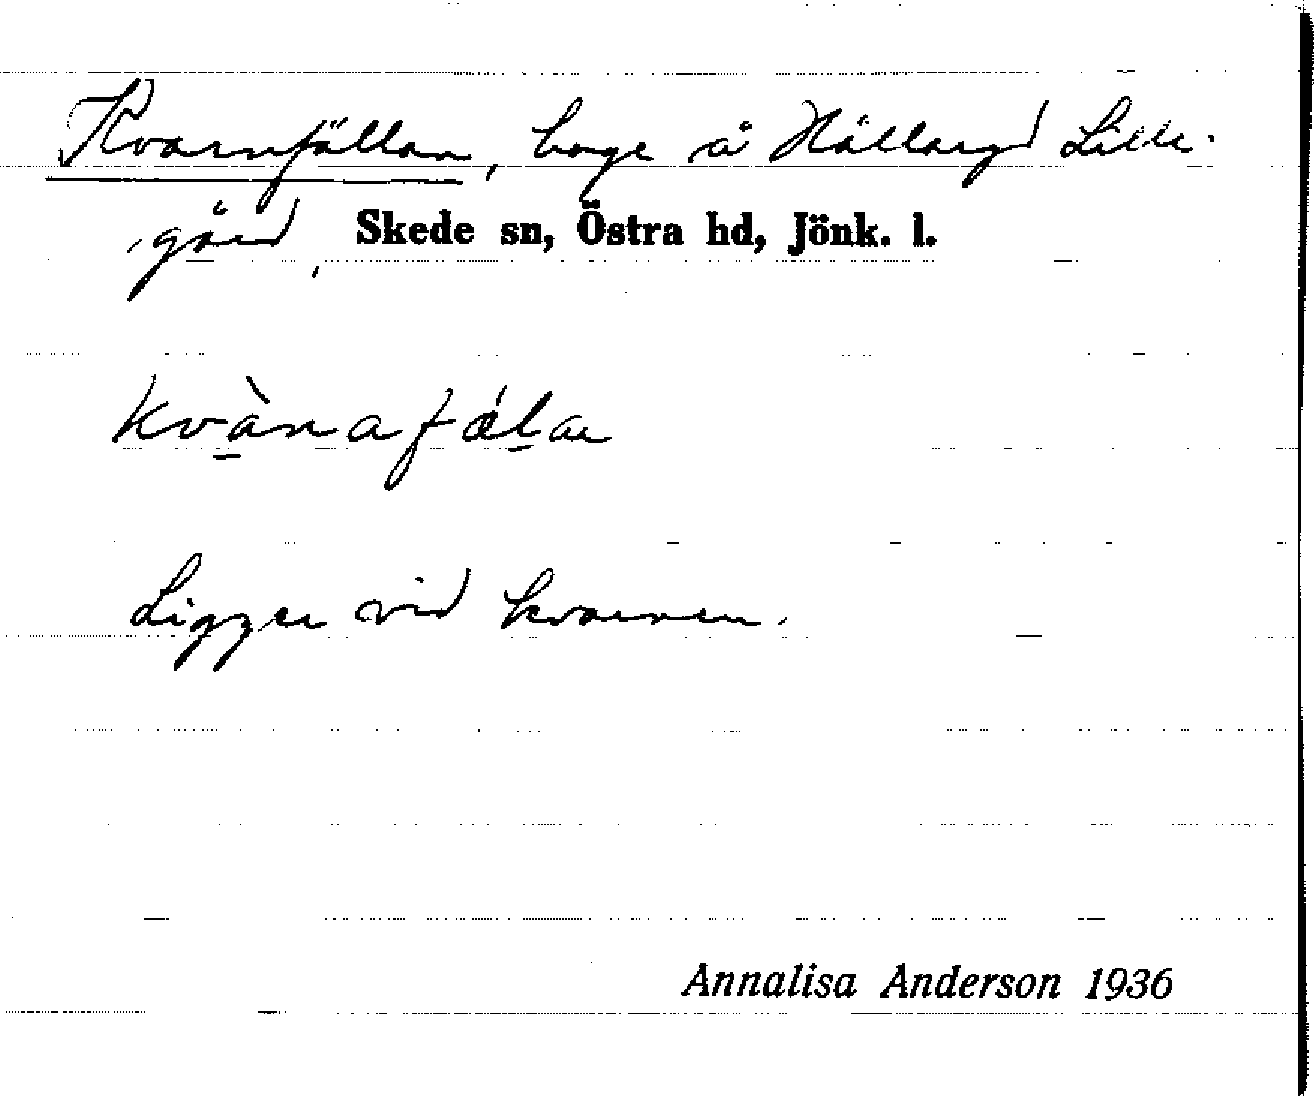 Kvarnfällan, hage å Hållaryd Lille-
gård, Skede sn, Östra hd, Jönk. l.
kvànafǽlan
Ligger vid kvarnen.
Annalisa Anderson 1936